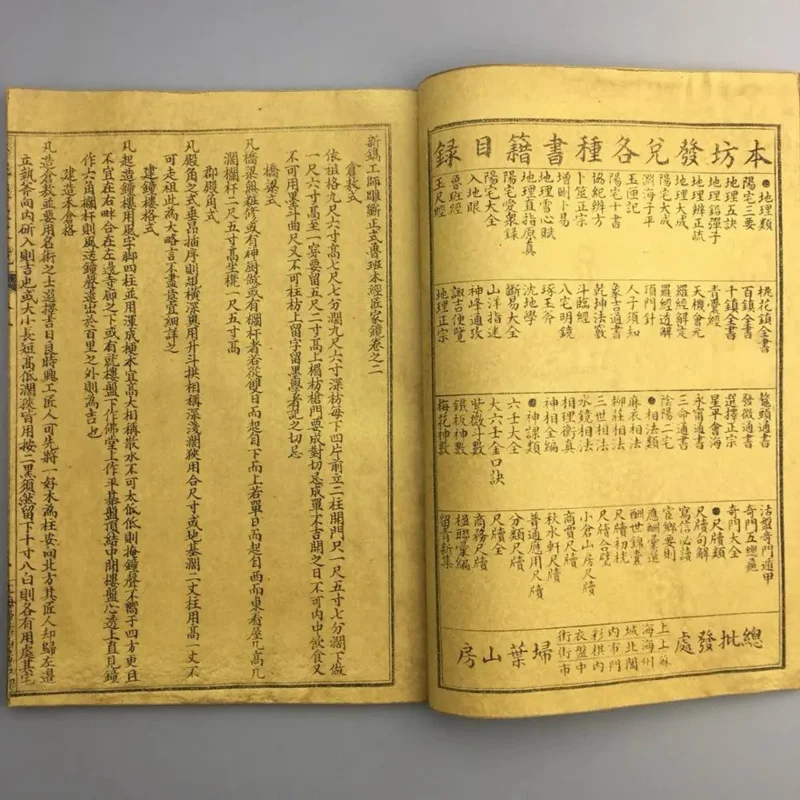 本坊發兌各種書籍目錄
●地理類
陽宅三要
地理五訣
地理鉛彈子
地理辨正疏
地理大成
陽宅大成
淵海子平
玉匣記
陽宅十書
協紀辨方
卜筮正宗
增刪卜易
地理雪心賦
地理直指原真
陽宅愛衆錄
陽宅大全
入地眼
魯班經
玉尺經
桃花鎮全書
百鎮全書
十鎮全書
青囊經
天機會元
羅經解定
羅經透解
頂門針
人子須知
象吉通書
乾坤法竅
斗臨經
八宅明鏡
琢玉斧
沈地學
斷易大全
山洋指迷
神峰通攷
諏吉便覽
地理正宗
鰲頭通書
發微通書
選擇正宗
星平會海
永甯通書
三命通書
陰陽二宅
●相法類
麻衣相法
柳莊相法
三世相法
水鏡相法
相理衡真
神相全編
●神課類
六壬大全
大六壬金口訣
紫微斗數
鐵板神數
梅花神數
沾盤奇門遁甲
奇門五總龜
奇門大全
●尺牘類
尺牘句解
寫信必讀
宦鄉要則
應酬彙選
酬世錦囊
尺牘初桄
尺牘合璧
小倉山房尺牘
商賈尺牘
秋水軒尺牘
普通應用尺牘
分類尺牘
尺牘全
商務尺牘
楹聯彙編
留青新集
總批發處
上海
上海
蘇州
城內
北市
閶門
彩衣街
棋盤街
內中市
掃葉山房
新鐫工師雕斲正式魯班木經匠家鏡卷之二
倉敖式
依祖格九尺六寸高七尺七分濶九尺六寸深枋每下四片前立二柱開門只一尺五寸七分濶下做
一尺六寸高至一穿要留五尺二寸高上楣枋槍門要成對切忌成單不吉開之日不可內中飲食又
不可用墨斗曲尺又不可柱枋上留字留黑學者記之切忌
橋梁式
凡橋梁無粧修或有神厨做或有欄杆者若從雙日而起自下而上若單日而起自西而東看屋几高几
濶欄杆二尺五寸高坐櫈一尺五寸高
郡殿角式
凡殿角之式垂昂插序則規橫深奧用升斗拱相稱深淺濶狹用合尺寸或地基濶二丈柱用高一丈不
可走祖此為大略言不盡意宜細詳之
建鐘樓格式
凡起造鐘樓用風字脚四柱並用渾成梗木宜高大相稱散水不可太低低則掩鐘聲不嚮于四方更且
不宜在右畔合在左邊寺廊之下或有就樓盤下作佛堂上作平棊盤頂結中開樓盤心透上直見鐘
作六角欄杆則風送鐘聲遠出於百里之外則為吉也
建造禾倉格
凡造倉敖並要用名術之士選擇吉日良時興工匠人可先將一好木為柱安向北方其匠人却歸左邊
立執斧向內斫入則吉也或大小長短高低濶狹皆用按二黑須然留下十寸八白則各有用處其它